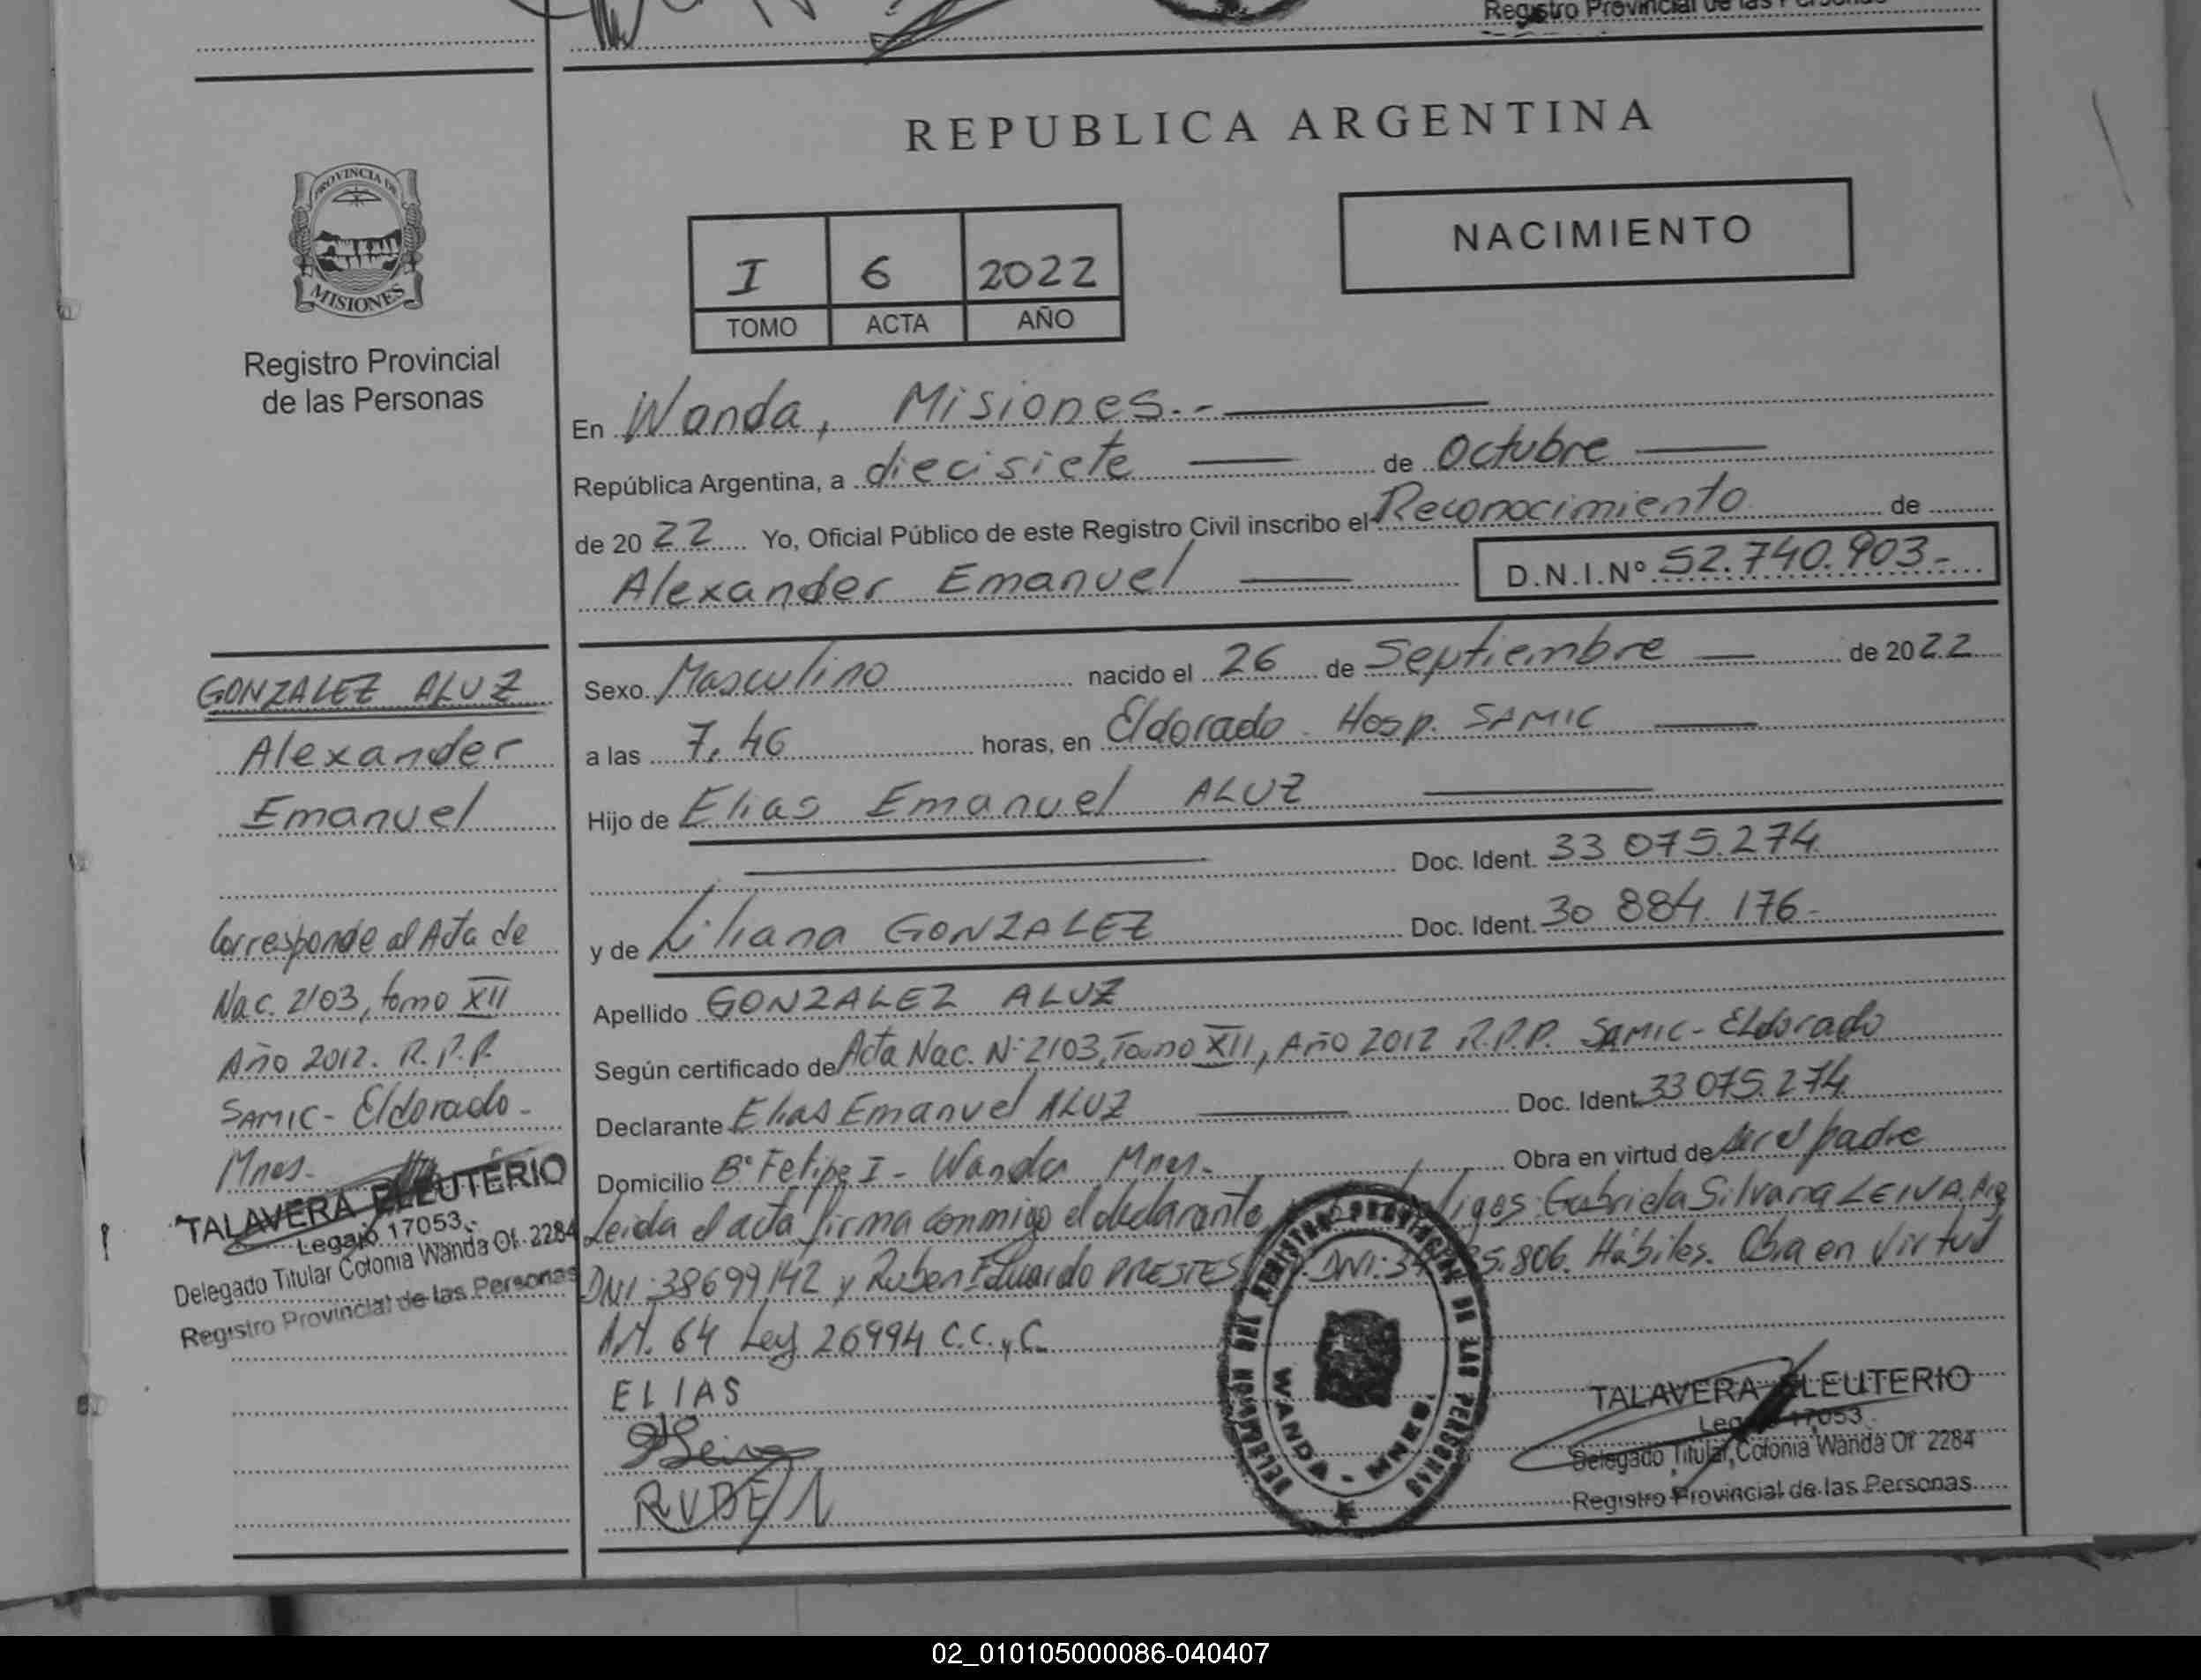 Registro Provincial de las Personas
REPUBLICA ARGENTINA
PROVINCIA DE
MISIONES
Registro Provincial
de las Personas
NACIMIENTO
I 6 2022
TOMO ACTA AÑO
En Wanda, Misiones.-
República Argentina, a diecisiete de Octubre
de 2022 Yo, Oficial Público de este Registro Civil inscribo el Reconocimiento de
Alexander Emanuel D.N.I.Nº 52.740.903-
GONZALEZ ALUZ
Alexander
Emanuel
Corresponde al Acta de
Nac. 2103, tomo XII
Año 2012. R.P.P.
SAMIC- Eldorado-
Mnes.
TALAVERA ELEUTERIO
Legajo 17053
Delegado Titular Colonia Wanda Of. 2284
Registro Provincial de las Personas
Sexo Masculino nacido el 26 de Septiembre de 2022
a las 7,46 horas, en Eldorado Hosp. SAMIC
Hijo de Elias Emanuel ALUZ
Doc. Ident. 33 075.274
y de Liliana GONZALEZ Doc. Ident. 30 884.176-
Apellido GONZALEZ ALUZ
Según certificado de Acta Nac. Nº 2103, Tomo XII, Año 2012 R.P.P. SAMIC- Eldorado
Declarante Elias Emanuel ALUZ Doc. Ident. 33 075.274
Domicilio Bº Felipe I - Wanda Mnes. Obra en virtud de ser el padre
Leida el acta firma conmigo el declarante Gabriela Silvana LEIVA
DNI: 38699142 y Ruben Eduardo PRESTES DNI: 5.806. Hábiles. Obra en virtud
Art. 64 Ley 26994 C.C.yC.
ELIAS
RUBEN
DELEGACION DEL REGISTRO PROVINCIAL DE LAS PERSONAS
WANDA - MNES.
TALAVERA ELEUTERIO
Legajo 17053
Delegado Titular, Colonia Wanda Of 2284
Registro Provincial de las Personas
02_010105000086-040407